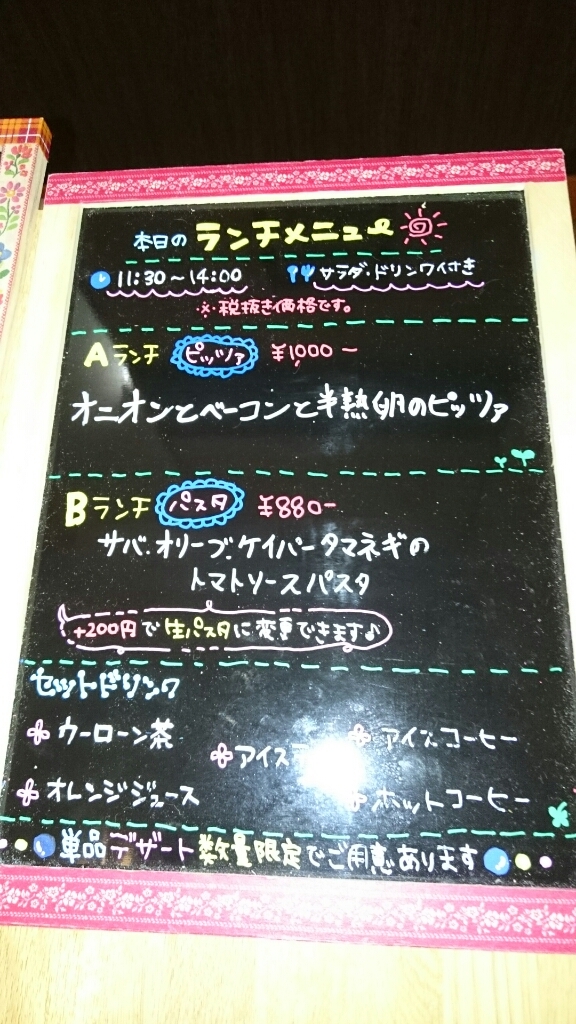 本日の ランチメニュー
11:30〜14:00 サラダ・ドリンク付き
※税抜き価格です。
Aランチ ピッツァ ¥1000-
オニオンとベーコンと半熟卵のピッツァ
Bランチ パスタ ¥880-
サバ・オリーブ・ケイパータマネギの
トマトソースパスタ
+200円で生パスタに変更できます♪
セットドリンク
ウーロン茶 アイスコーヒー
アイス
オレンジジュース ホットコーヒー
単品デザート数量限定でご用意あります